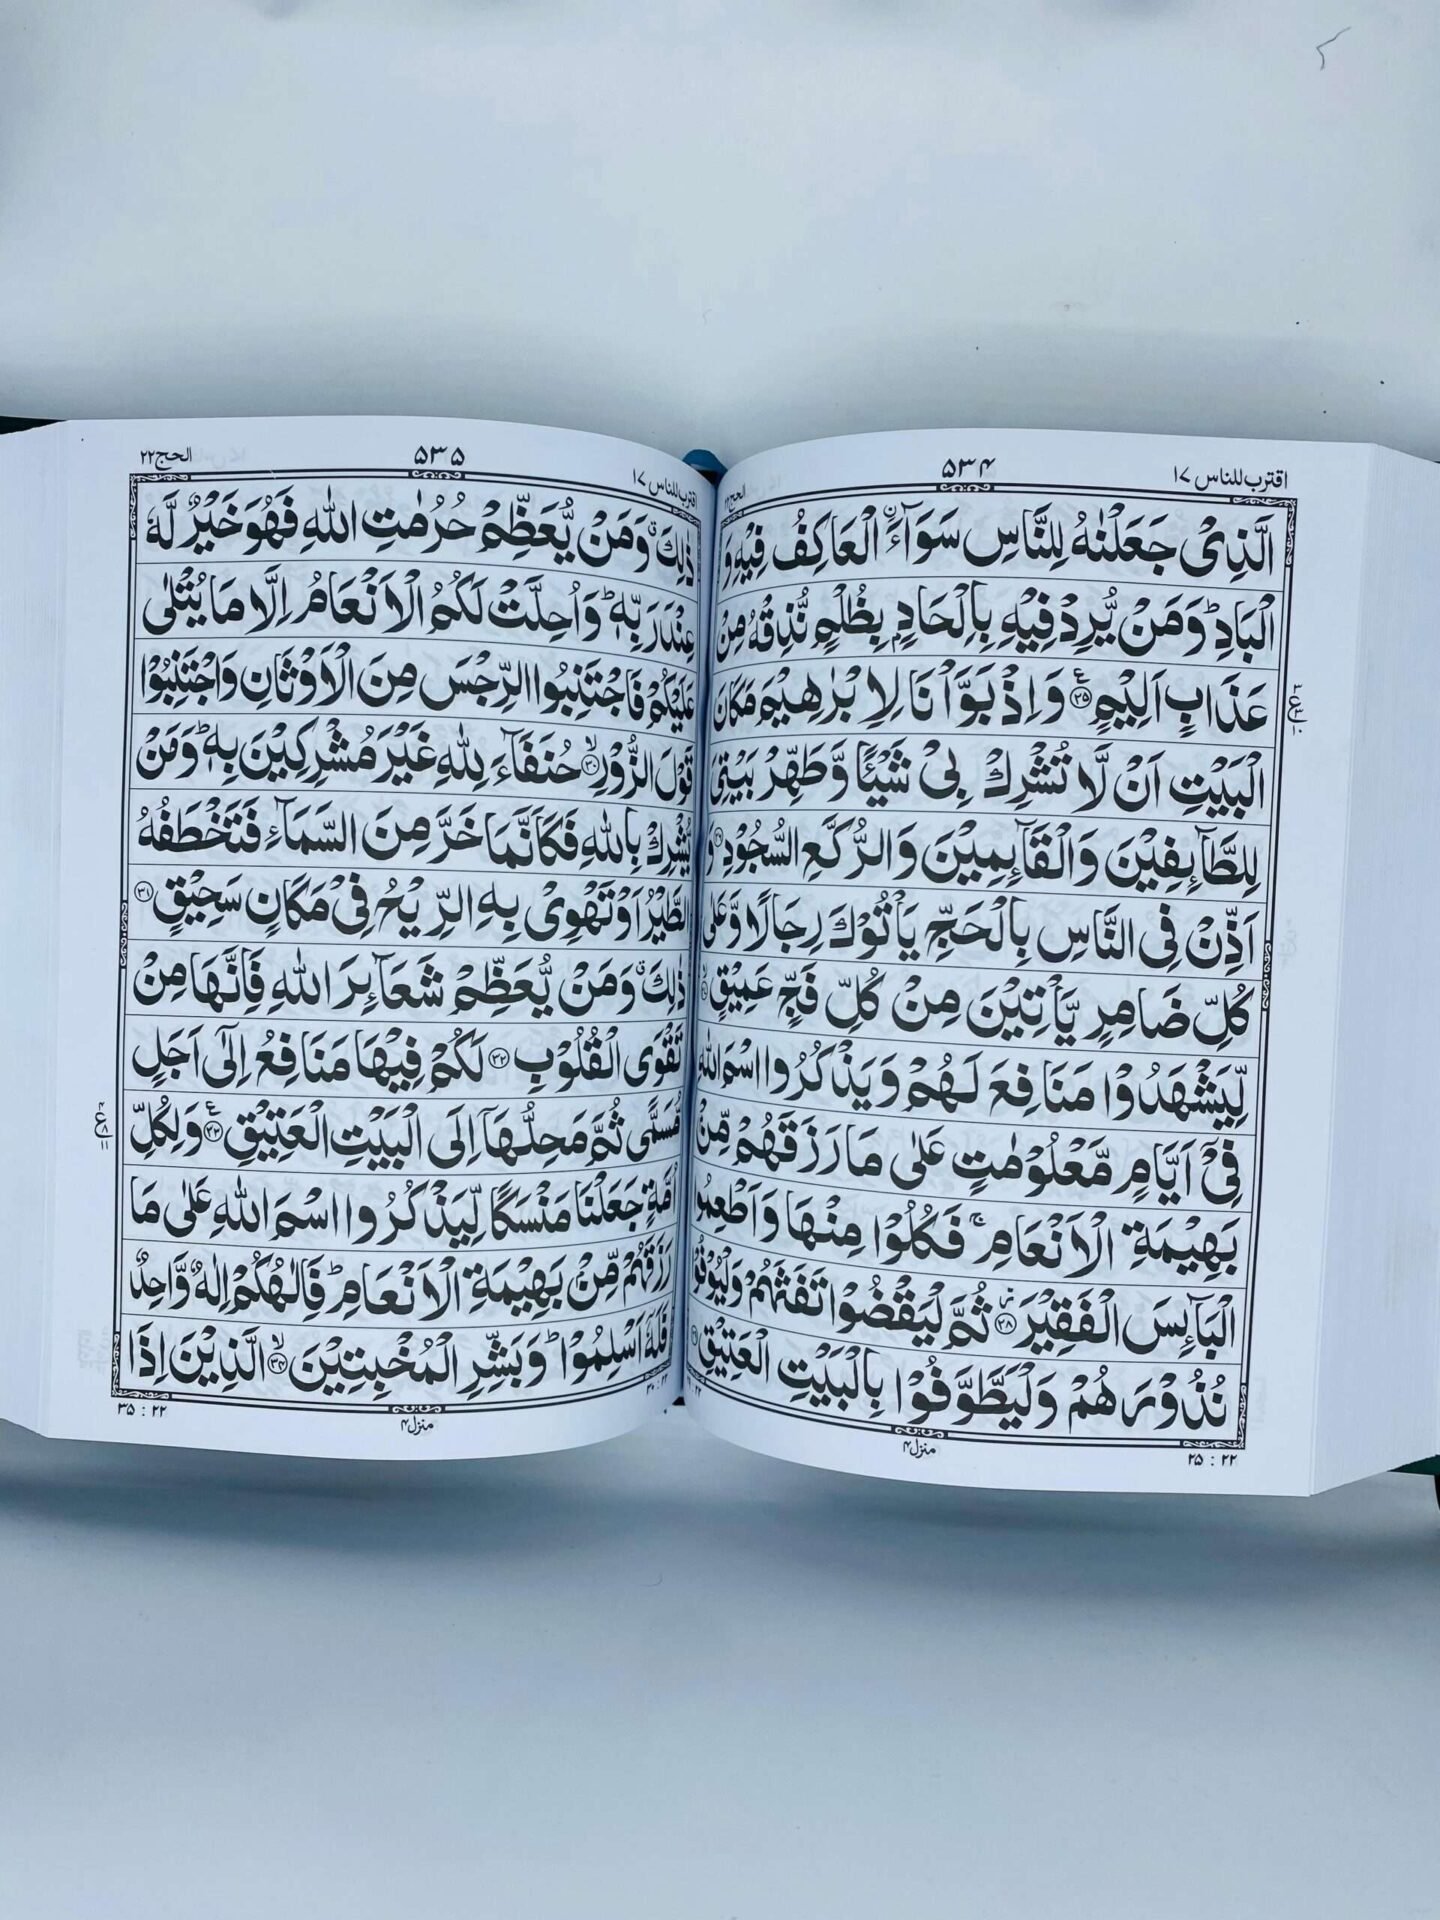 اقترب للناس ١٧
۵۳۴
الحج ٢٢
الَّذِىْ جَعَلْنٰهُ لِلنَّاسِ سَوَآءَ اۨلْعَاكِفُ فِيْهِ وَ
الْبَادِ ؕ وَمَنْ يُّرِدْ فِيْهِ بِاِلْحَادٍۢ بِظُلْمٍ نُّذِقْهُ مِنْ
عَذَابٍ اَلِيْمٍ ۟﴿۲۵﴾ وَاِذْ بَوَّاْنَا لِاِبْرٰهِيْمَ مَكَانَ
الْبَيْتِ اَنْ لَّا تُشْرِكْ بِىْ شَيْـًٔا وَّطَهِّرْ بَيْتِىَ
لِلطَّآئِفِيْنَ وَالْقَآئِمِيْنَ وَالرُّكَّعِ السُّجُوْدِ ﴿۲۶﴾ وَ
اَذِّنْ فِى النَّاسِ بِالْحَجِّ يَاْتُوْكَ رِجَالًا وَّعَلٰى
كُلِّ ضَامِرٍ يَّاْتِيْنَ مِنْ كُلِّ فَجٍّ عَمِيْقٍ ۙ﴿۲۷﴾
لِّيَشْهَدُوْا مَنَافِعَ لَهُمْ وَيَذْكُرُوا اسْمَ اللّٰهِ
فِىْۤ اَيَّامٍ مَّعْلُوْمٰتٍ عَلٰى مَا رَزَقَهُمْ مِّنْۢ
بَهِيْمَةِ الْاَنْعَامِ ۚ فَكُلُوْا مِنْهَا وَاَطْعِمُوا
الْبَآئِسَ الْفَقِيْرَ ﴿۲۸﴾ ثُمَّ لْيَقْضُوْا تَفَثَهُمْ وَلْيُوْفُوْا
نُذُوْرَهُمْ وَلْيَطَّوَّفُوْا بِالْبَيْتِ الْعَتِيْقِ ﴿۲۹﴾
منزل۴
۲۲ : ۲۵
اقترب للناس ١٧
۵۳۵
الحج ٢٢
ذٰلِكَ ۗ وَمَنْ يُّعَظِّمْ حُرُمٰتِ اللّٰهِ فَهُوَ خَيْرٌ لَّهٗ
عِنْدَ رَبِّهٖ ؕ وَاُحِلَّتْ لَكُمُ الْاَنْعَامُ اِلَّا مَا يُتْلٰى
عَلَيْكُمْ فَاجْتَنِبُوا الرِّجْسَ مِنَ الْاَوْثَانِ وَاجْتَنِبُوْا
قَوْلَ الزُّوْرِ ۙ﴿۳۰﴾ حُنَفَآءَ لِلّٰهِ غَيْرَ مُشْرِكِيْنَ بِهٖ ؕ وَمَنْ
يُّشْرِكْ بِاللّٰهِ فَكَاَنَّمَا خَرَّ مِنَ السَّمَآءِ فَتَخْطَفُهُ
الطَّيْرُ اَوْ تَهْوِىْ بِهِ الرِّيْحُ فِىْ مَكَانٍ سَحِيْقٍ ﴿۳۱﴾
ذٰلِكَ ۗ وَمَنْ يُّعَظِّمْ شَعَآئِرَ اللّٰهِ فَاِنَّهَا مِنْ
تَقْوَى الْقُلُوْبِ ﴿۳۲﴾ لَكُمْ فِيْهَا مَنَافِعُ اِلٰٓى اَجَلٍ
مُّسَمًّى ثُمَّ مَحِلُّهَاۤ اِلَى الْبَيْتِ الْعَتِيْقِ ۟﴿۳۳﴾ وَلِكُلِّ
اُمَّةٍ جَعَلْنَا مَنْسَكًا لِّيَذْكُرُوا اسْمَ اللّٰهِ عَلٰى مَا
رَزَقَهُمْ مِّنْۢ بَهِيْمَةِ الْاَنْعَامِ ؕ فَاِلٰهُكُمْ اِلٰهٌ وَّاحِدٌ
فَلَهٗۤ اَسْلِمُوْا ؕ وَبَشِّرِ الْمُخْبِتِيْنَ ۙ﴿۳۴﴾ الَّذِيْنَ اِذَا
۲۲ : ۳۰
منزل۴
۲۲ : ۳۵